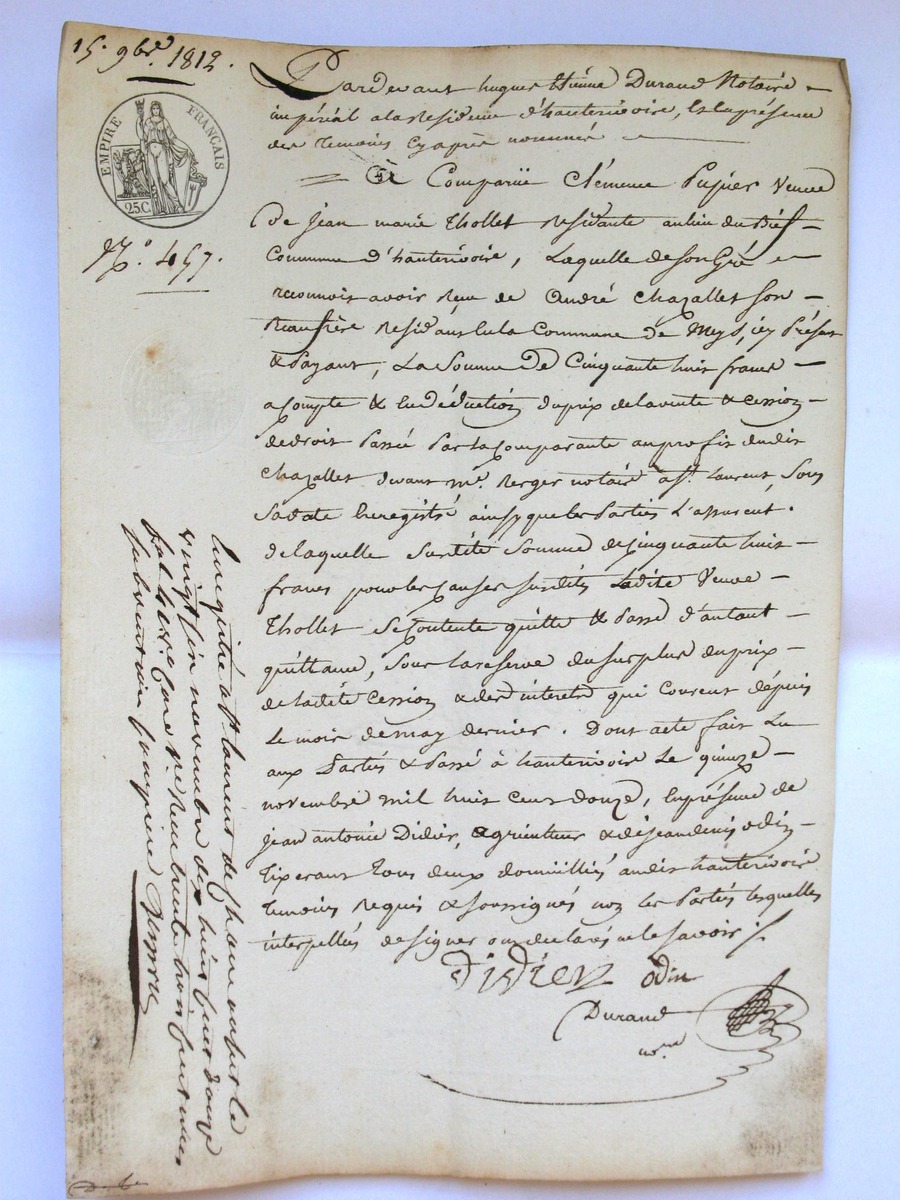 15. 9bre. 1812.
EMPIRE FRANÇAIS
25 C.
No. 457.
Pardevant hugues Etienne Durand Notaire
impérial a la Residence d'hauterivoire, En la présence
des temoins Cy après nommés
Est Comparüe Clémence Pupier Veuve
De Jean marie Thollet Residante au lieu du Bief
Commune d'hauterivoire, Laquelle de son Gré
reconnoit avoir Reçu de André Chazallet son
Beaufrère Residant En la Commune de Meys, icy Présent
& Payant, La Somme De Cinquante huit francs
acompte & En Déduction du prix de la vente & Cession
de droit Passée Par La Comparante au profit dudit
Chazallet devant me. Berger notaire a St. Laurent, Sous
Sa date Enregistré ainsy que les Parties L'assurent.
de laquelle Susdite Somme de Cinquante huit
francs pour les Causes Susdites Ladite Veuve
Thollet Se Contente quitte & Passe d'autant
quittance, Sous la reserve du surplus du prix
de ladite Cession & des interets qui Courent dépuis
Le mois de may dernier. Dont acte fait Lu
aux Parties & Passé à hauterivoire Le quinze
novembre mil huit Cent douze, En présence de
Jean Antoine Didier, agriculteur & de Jean denis odin
Tixerant Tous deux domiciliés audit hauterivoire
Temoins Requis & Soussignés non les Parties lesquelles
interpellés de signer ont déclarés ne le Savoir
Didier odin
Durand
nore
Enregistré a St Laurent de Chamousset le
vingt six novembre dix huit cent douze
fol. Reçu trente trois centimes
subvention comprise